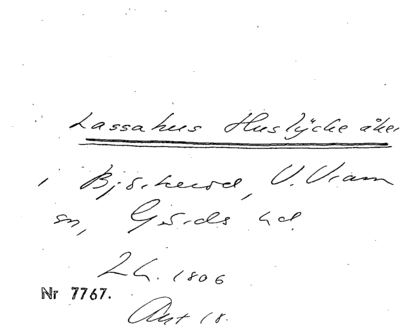 Lassahus Huslycke åker
i Björkerød, V. Vram
sn, Gärds hd.
2 h. 1806
Nr 7767.
Akt 18.